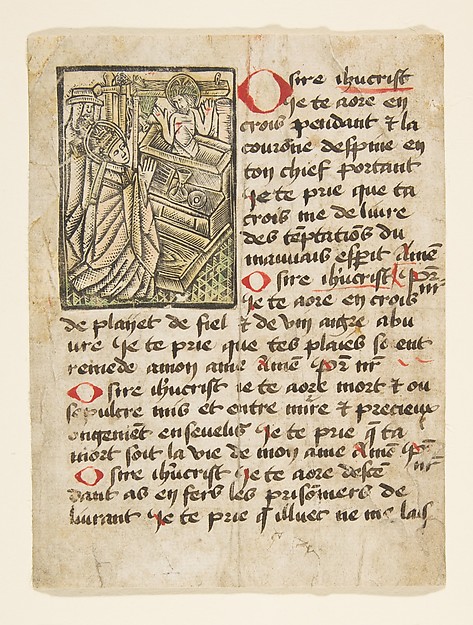 O sire ihūcrist
ie te aore en
crois pendant & la
couronne despine en
ton chief portant
Je te prie que ta
crois me deliure
des tēptatiōs du
mauuais esperit Amē
O sire ihūcrist Pr̄ nr̄
Je te aore en crois
de plaiyet de fiel & de vin aigre abu
ure Je te prie que tes plaies soient
remede a mon ame Amē Pr̄ nr̄
O sire ihūcrist ie te aore mort & ou
sepulcre mis et entre mire & precieux
ongement enseueli Je te prie q̄ ta
mort soit la vie de mon ame Amē Pr̄ nr̄
O sire ihūcrist Je te aore descē
dant as en fers les prisōniers de
liurant Je te prie q̄ illuec ne me lais